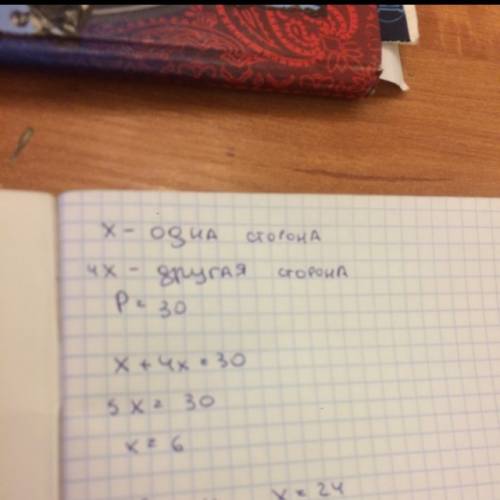 x - одна сторона
4x - другая сторона
P = 30
x + 4x = 30
5x = 30
x = 6
x = 24